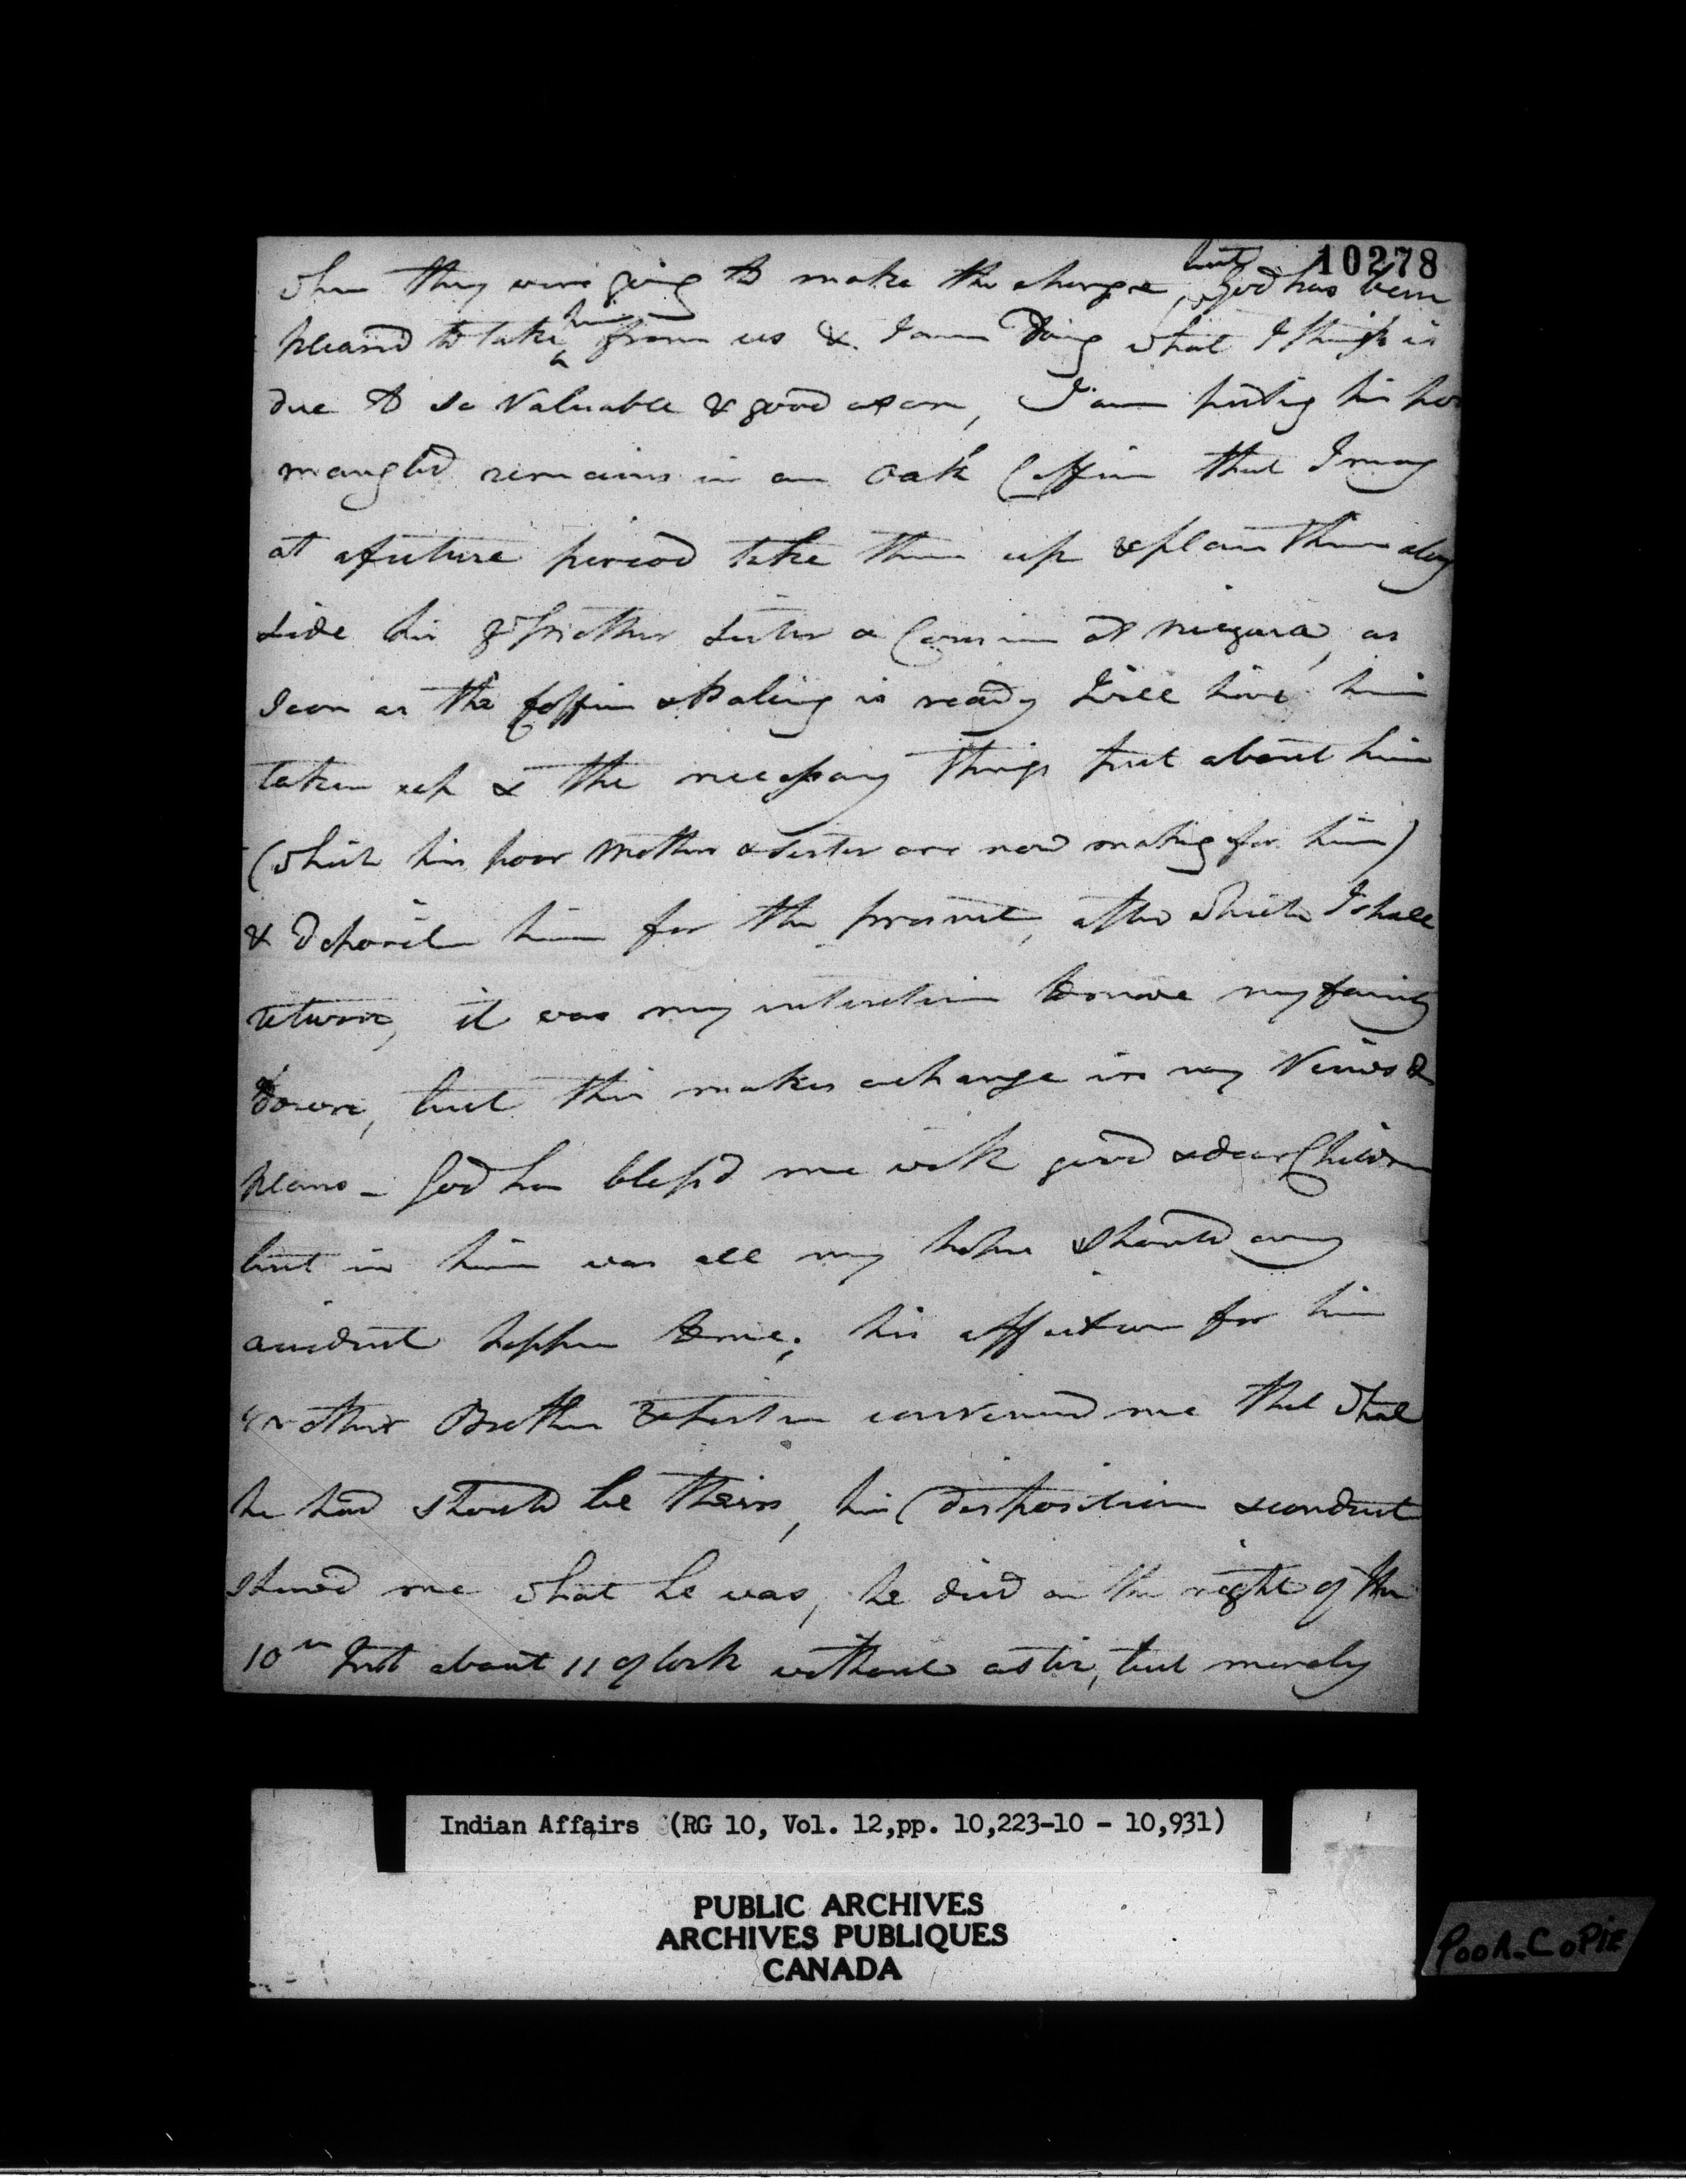 10278
when they were going to make the charge, but God has been
pleased to take him from us & I am doing what I think is
due to so Valuable & good a son, I am putting his poor
mangled remains in an oak Coffin that I may
at a future period take them up & place them along
side his Brother Sister a Cousin at Niagara, as
soon as the Coffin & Paling is ready I will have him
taken up & the necessary things put about him
(which his poor Mother & Sister are now making for him)
& deposite him for the present, after which I shall
return, it was my intention to move my family
down, but this makes a change in my Views &
plans - God has bless'd me with good & dear Children
but in him was all my hopes should any
accident happen to me; his affection for his
Mother Brother & Sister convinced me that what
he had should be theirs, his disposition & conduct
shewed me what he was, he died on the night of the
10th Inst about 11 oClock without a stir, but merely
Indian Affairs (RG 10, Vol. 12,pp. 10,223-10 - 10,931)
PUBLIC ARCHIVES
ARCHIVES PUBLIQUES
CANADA
POOR COPIE